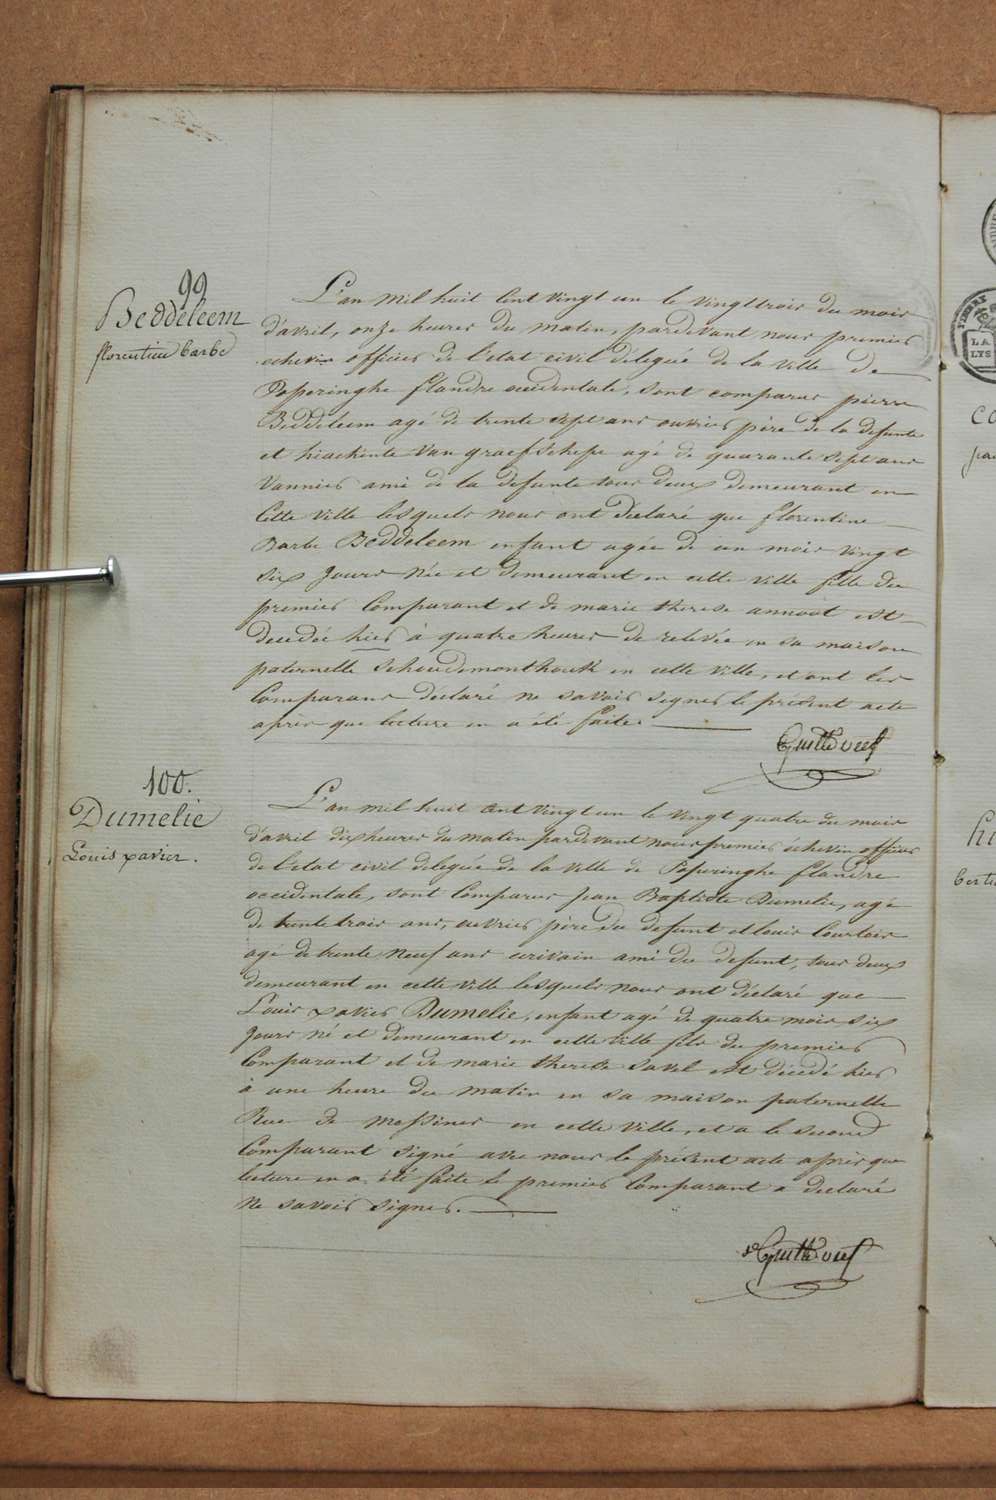 99
Beddeleem
florentine barbe
L'an mil huit cent vingt un le vingttrois du mois
d'avril, onze heures du matin, pardevant nous premier
echevin officier de l'etat civil délegué de la ville de
Poperinghe flandre occidentale, sont comparus pierre
Beddeleem agé de trente sept ans ouvrier père de la defunte
et hiackinte Van graefschepe agé de quarante sept ans
Vannier ami de la defunte tous deux demeurant en
Cette Ville lesquels nous ont déclaré que florentine
Barbe Beddeleem enfant agée de un mois vingt
six jours Née et demeurant en cette ville fille du
premier Comparant et de marie therese annoot est
decedée hier à quatre heures de relevée en sa maison
paternelle en cette ville, et ont les
Comparans declaré ne savoir signer le présent acte
après que lecture en a été faite.
100.
Dumelie
Louis xavier.
L'an mil huit cent vingt un le vingt quatre du mois
d'avril dix heures du matin pardevant nous premier échevin officier
de l'état civil delegué de la ville de Poperinghe flandre
occidentale, sont Comparus jean Baptiste Dumelie, agé
de trente trois ans, ouvrier père du defunt et louis Courtois
agé de trente Neuf ans ecrivain ami du defunt, tous deux
demeurant en cette ville lesquels nous ont déclaré que
Louis xavier Dumelie, enfant agé de quatre mois six
jours né et demeurant en cette ville fils du premier
Comparant et de marie therese savel est décedé hier
à une heure du matin en sa maison paternelle
Rue de Messines en cette ville, et a le second
Comparant signé avec nous le présent acte après que
lecture en a été faite le premier Comparant a declaré
Ne savoir signer.
LA
LYS